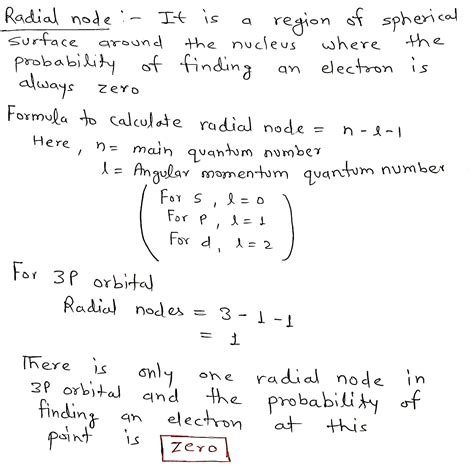 Radial node :- It is a region of spherical
surface around the nucleus where the
probability of finding an electron is
always zero
Formula to calculate radial node = n - l - 1
Here, n = main quantum number
l = Angular momentum quantum number
For s, l = 0
For p, l = 1
For d, l = 2
For 3P orbital
Radial nodes = 3 - 1 - 1
= 1
There is only one radial node in
3P orbital and the probability of
finding an electron at this
point is zero